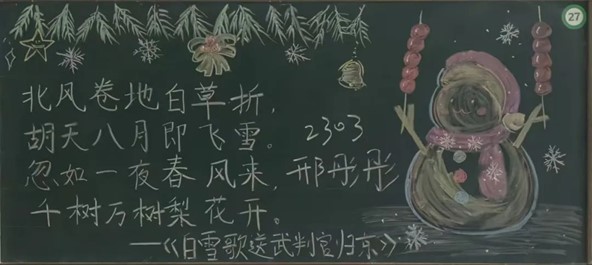 北风卷地白草折,
胡天八月即飞雪。
忽如一夜春风来,
千树万树梨花开。
——《白雪歌送武判官归京》
2303
邢彤彤
27